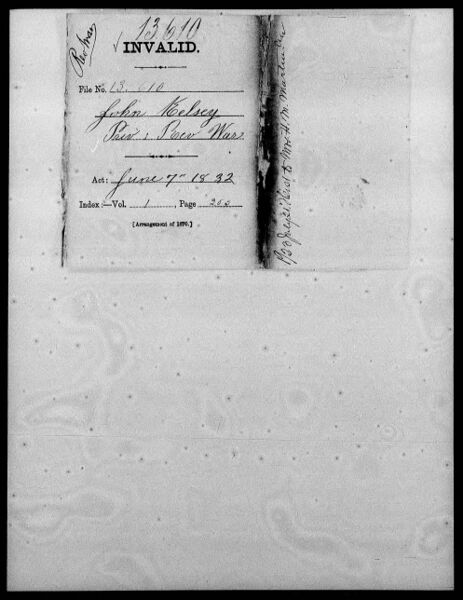 Rev War
13,610
INVALID.
File No. 13,610
John Kelsey
Priv : Rev War
Act: June 7" 1832
Index:—Vol. 1, Page 200
[Arrangement of 1870.]
Hist to Mrs H. M. Martin